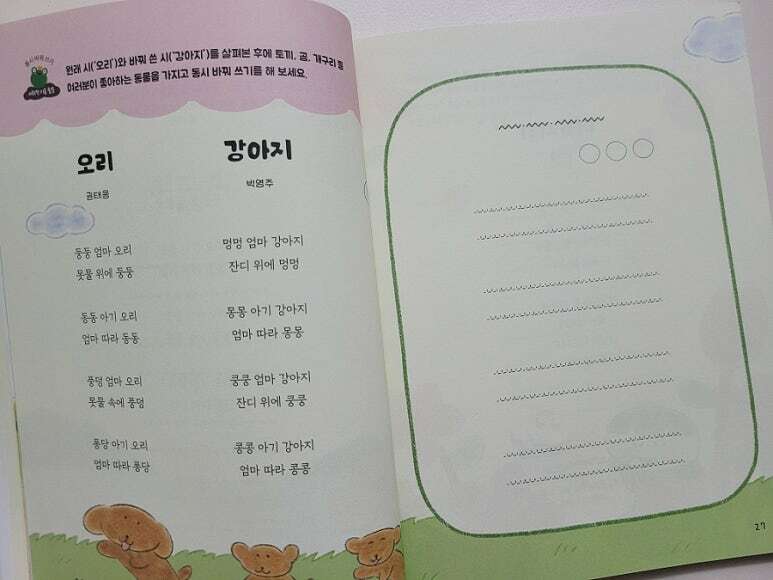 동시 바꿔 쓰기
원래 시('오리')와 바꿔 쓴 시('강아지')를 살펴본 후에 토끼, 곰, 개구리 등
여러분이 좋아하는 동물을 가지고 동시 바꿔 쓰기를 해 보세요.
오리
권태응
둥둥 엄마 오리
못물 위에 둥둥
동동 아기 오리
엄마 따라 동동
풍덩 엄마 오리
못물 속에 풍덩
퐁당 아기 오리
엄마 따라 퐁당
강아지
박영주
멍멍 엄마 강아지
잔디 위에 멍멍
몽몽 아기 강아지
엄마 따라 몽몽
쿵쿵 엄마 강아지
잔디 위에 쿵쿵
콩콩 아기 강아지
엄마 따라 콩콩
27